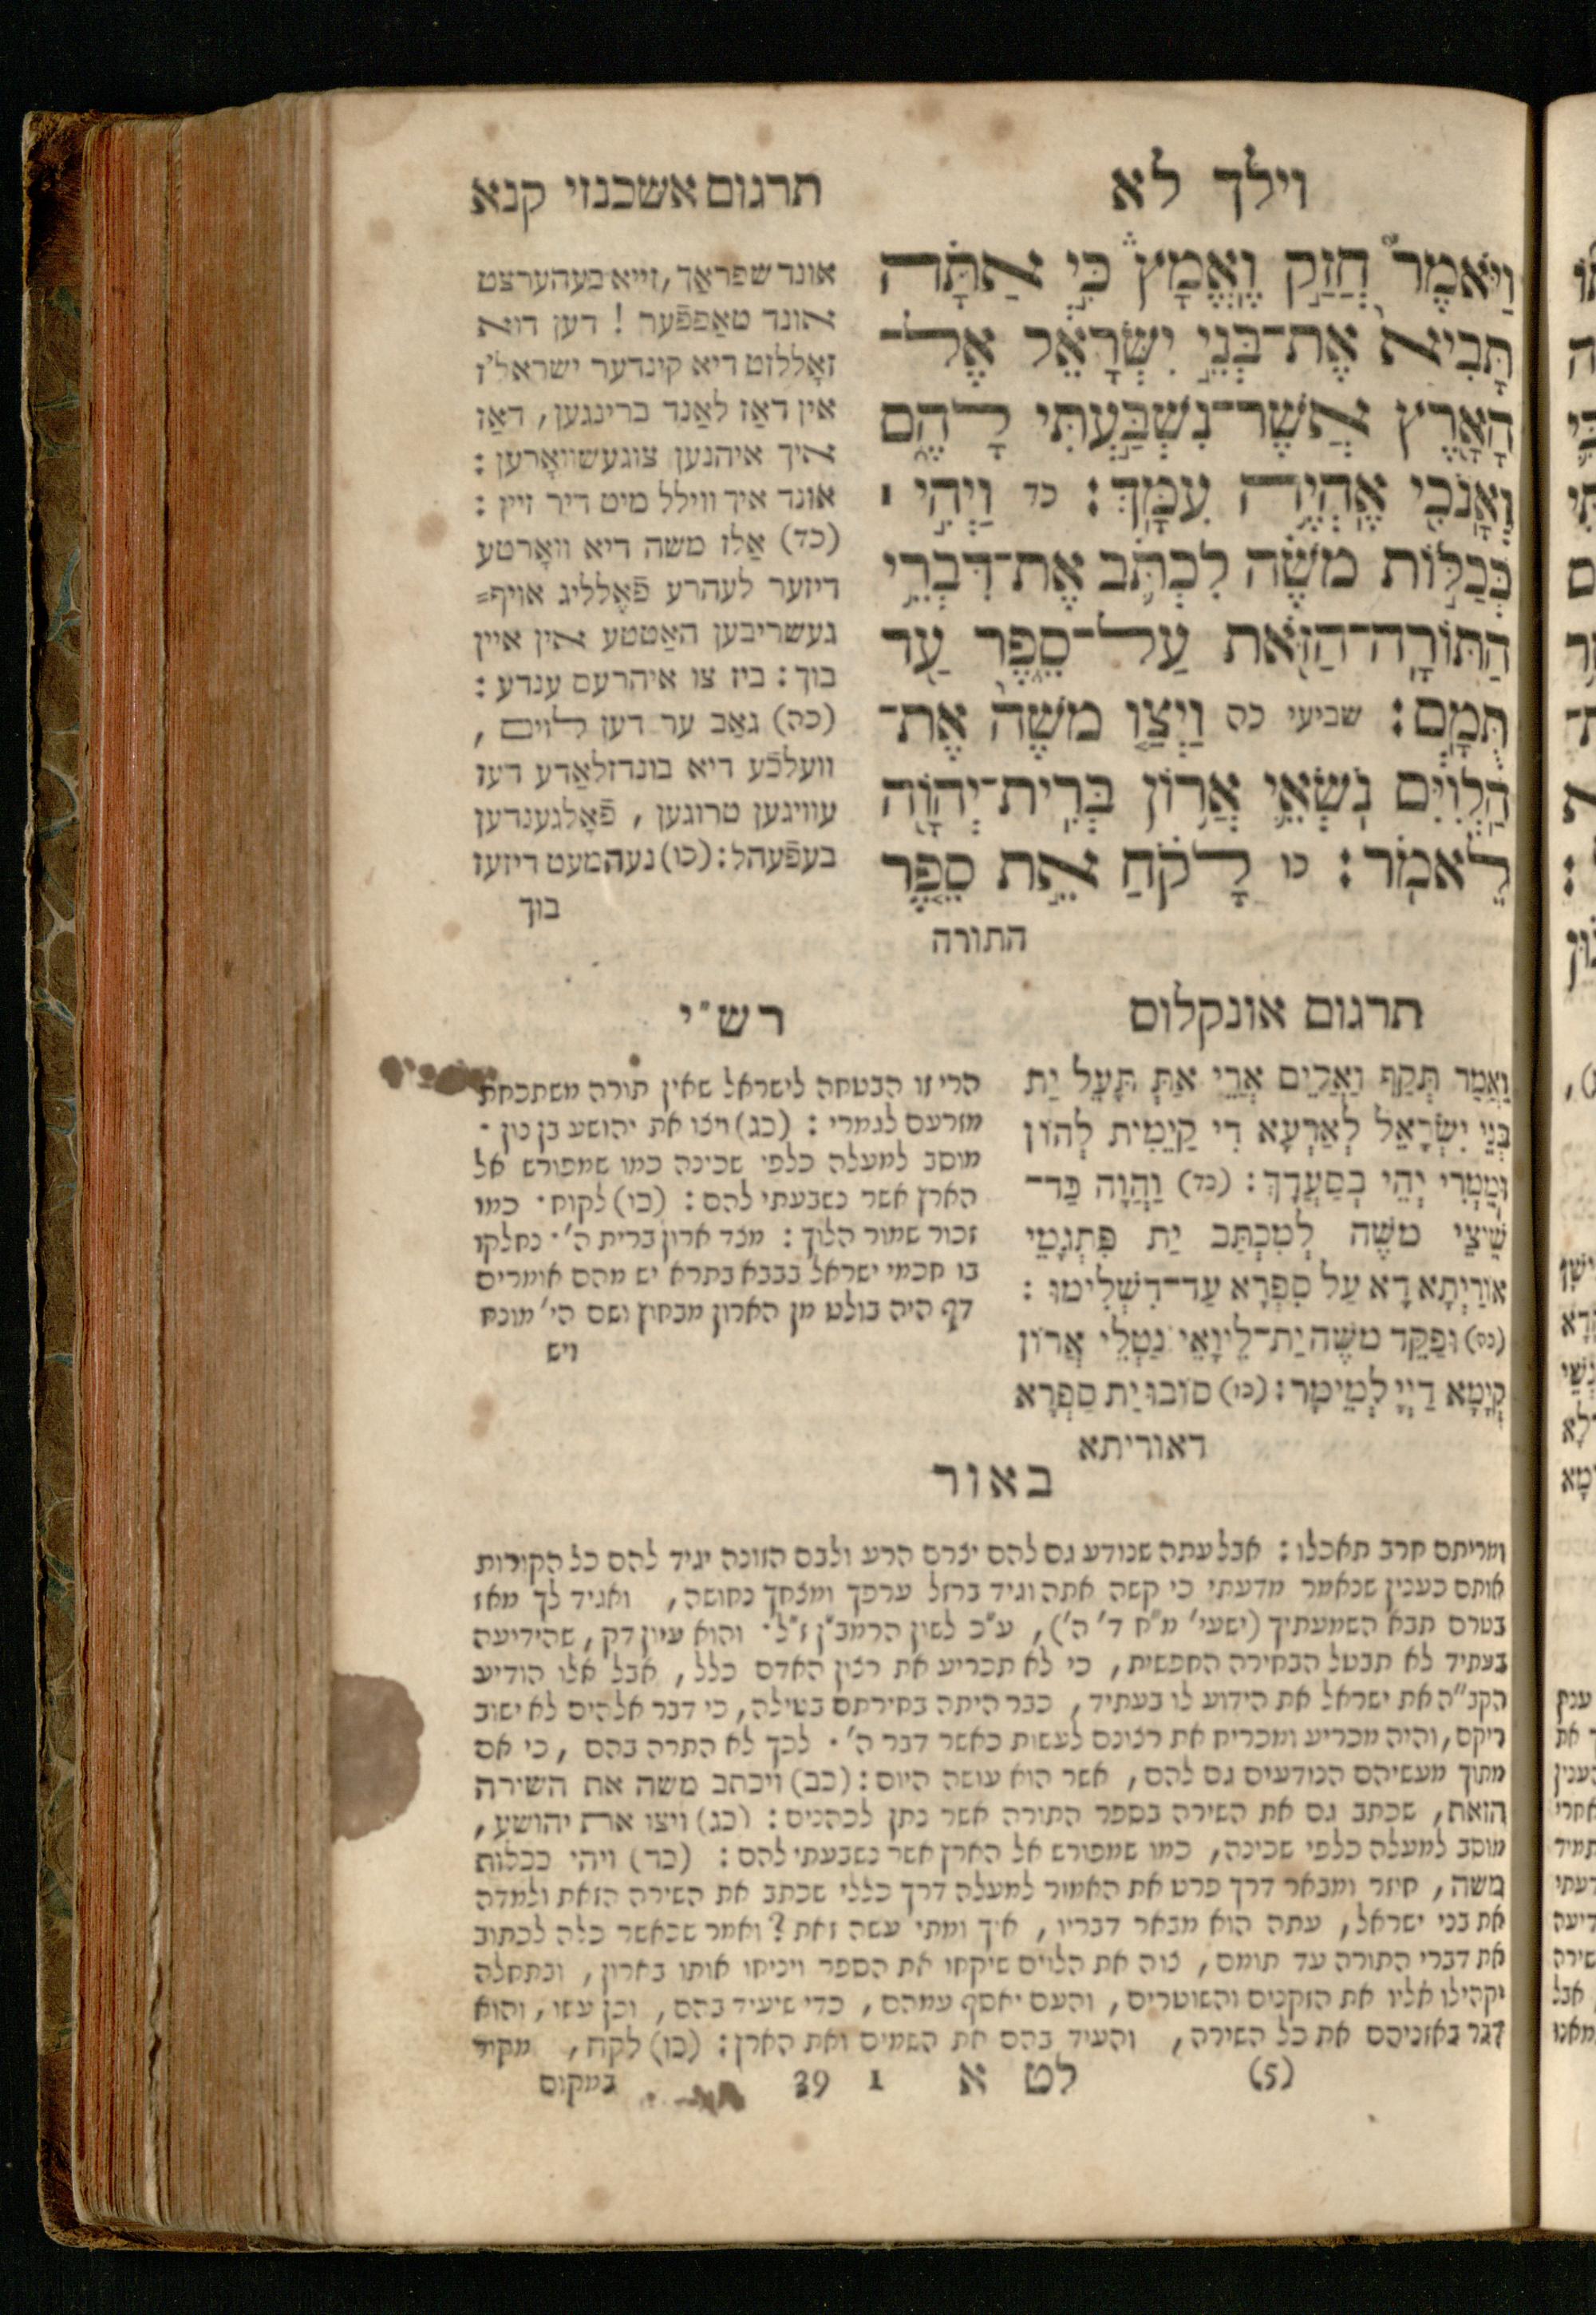 וילך לא
תרגום אשכנזי קנא
וַיֹּאמֶר חֲזַק וֶאֱמָץ כִּי אַתָּה
תָּבִיא אֶת־בְּנֵי יִשְׂרָאֵל אֶל־
הָאָרֶץ אֲשֶׁר־נִשְׁבַּעְתִּי לָהֶם
וְאָנֹכִי אֶהְיֶה עִמָּךְ׃ כד וַיְהִי ׀
כְּכַלּוֹת מֹשֶׁה לִכְתֹּב אֶת־דִּבְרֵי
הַתּוֹרָה־הַזֹּאת עַל־סֵפֶר עַד
תֻּמָּם׃ שביעי כה וַיְצַו מֹשֶׁה אֶת־
הַלְוִיִּם נֹשְׂאֵי אֲרוֹן בְּרִית־יְהוָה
לֵאמֹר׃ כו לָקֹחַ אֵת סֵפֶר
התורה
אונד שפראַך, זייא בעהערצט
אונד טאַפפֿער! דען דוא
זאָללזט דיא קינדער ישראל'ז
אין דאַז לאַנד ברינגען, דאַז
איך איהנען צוגעשוואָרען:
אונד איך ווילל מיט דיר זיין:
(כד) אַלז משה דיא וואָרטע
דיזער לעהרע פֿאָלליג אויף=
געשריבען האַטטע אין איין
בוך: ביז צו איהרעם ענדע:
(כה) גאַב ער דען לוים,
וועלכֿע דיא בונדזלאַדע דעז
עוויגען טרוגען, פֿאָלגענדען
בעפֿעהל: (כו) נעהמעט דיזעז
בוך
תרגום אונקלוס
וַאֲמַר תְּקַף וַאֲלֵים אֲרֵי אַתְּ תָּעֵל יַת
בְּנֵי יִשְׂרָאֵל לְאַרְעָא דִי קַיֵמִית לְהוֹן
וּמֵימְרִי יְהֵי בְסַעֲדָךְ: (כד) וַהֲוָה כַּד־
שֵׁיצֵי מֹשֶׁה לְמִכְתַּב יַת פִּתְגָמֵי
אוֹרַיְתָא דָא עַל סִפְרָא עַד־דִשְׁלִימוּ:
(כה) וּפַקֵּד מֹשֶׁה יַת־לֵיוָאֵי נַטְלֵי אֲרוֹן
קְיָמָא דַיְיָ לְמֵימָר: (כו) סוֹבוּ יַת סִפְרָא
דאוריתא
רש״י
הרי זו הבטחה לישראל שאין תורה משתכחת
מזרעם לגמרי: (כג) ויצו את יהושע בן נון ·
מוסב למעלה כלפי שכינה כמו שמפורש אל
הארץ אשר נשבעתי להם: (כו) לקוח · כמו
זכור שמור הלוך: מצד ארון ברית ה' · נחלקו
בו חכמי ישראל בבבא בתרא יש מהם אומרים
דף היה בולט מן הארון מבחוץ ושם הי' מונח
ויש
באור
ומריתם חרב תאכלו: אבל עתה שנודע גם להם יצרם הרע ולבם הזונה יגיד להם כל הקורות
אותם כענין שנאמר מדעתי כי קשה אתה וגיד ברזל ערפך ומצחך נחושה, ואגיד לך מאז
בטרם תבא השמעתיך (ישעי' מ״ח ד' ה'), ע״כ לשון הרמב״ן ז״ל · והוא עיון דק, שהידיעה
בעתיד לא תבטל הבחירה החפשית, כי לא תכריע את רצון האדם כלל, אבל אלו הודיע
הקב״ה את ישראל את הידוע לו בעתיד, כבר היתה בחירתם בטילה, כי דבר אלהים לא ישוב
ריקם, והיה מכריע ומכריח את רצונם לעשות כאשר דבר ה' · לכך לא התרה בהם, כי אם
מתוך מעשיהם הנודעים גם להם, אשר הוא עושה היום: (כב) ויכתב משה את השירה
הזאת, שכתב גם את השירה בספר התורה אשר נתן לכהנים: (כג) ויצו את יהושע,
מוסב למעלה כלפי שכינה, כמו שמפורש אל הארץ אשר נשבעתי להם: (כד) ויהי ככלות
משה, חיזר ומבאר דרך פרט את האמור למעלה דרך כללי שכתב את השירה הזאת ולמדה
את בני ישראל, עתה הוא מבאר דבריו, איך ומתי עשה זאת? ואמר שכאשר כלה לכתוב
את דברי התורה עד תומם, צוה את הלוים שיקחו את הספר ויניחו אותו בארון, ובתחלה
יקהילו אליו את הזקנים והשוטרים, והעם יאסף עמהם, כדי שיעיד בהם, וכן עשו, והוא
דבר באזניהם את כל השירה, והעיד בהם את השמים ואת הארץ: (כו) לקח, מקור
(5) לט א 1 39 במקום